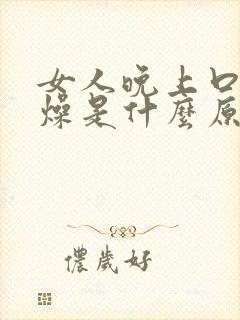 女人晚上口
燥是什麼原
儂歲好